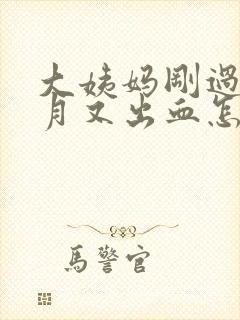 大姨妈刚過
月又出血怎
馬警官